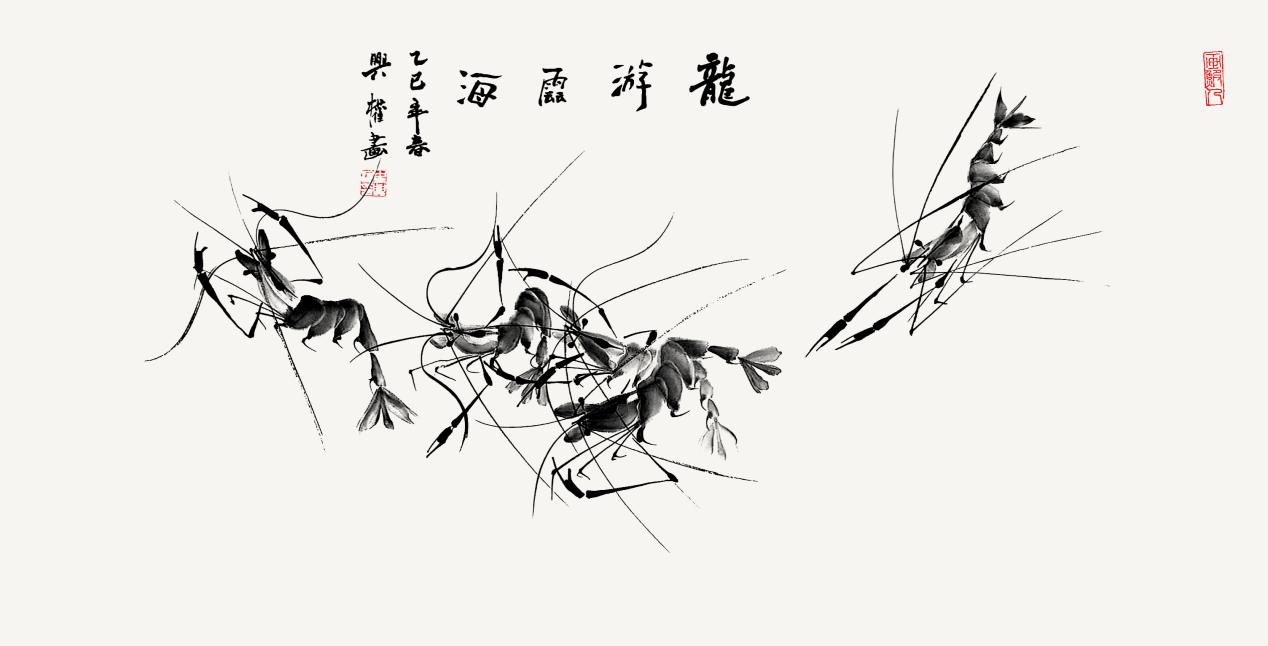 龍游海
乙巳年春
興權畫